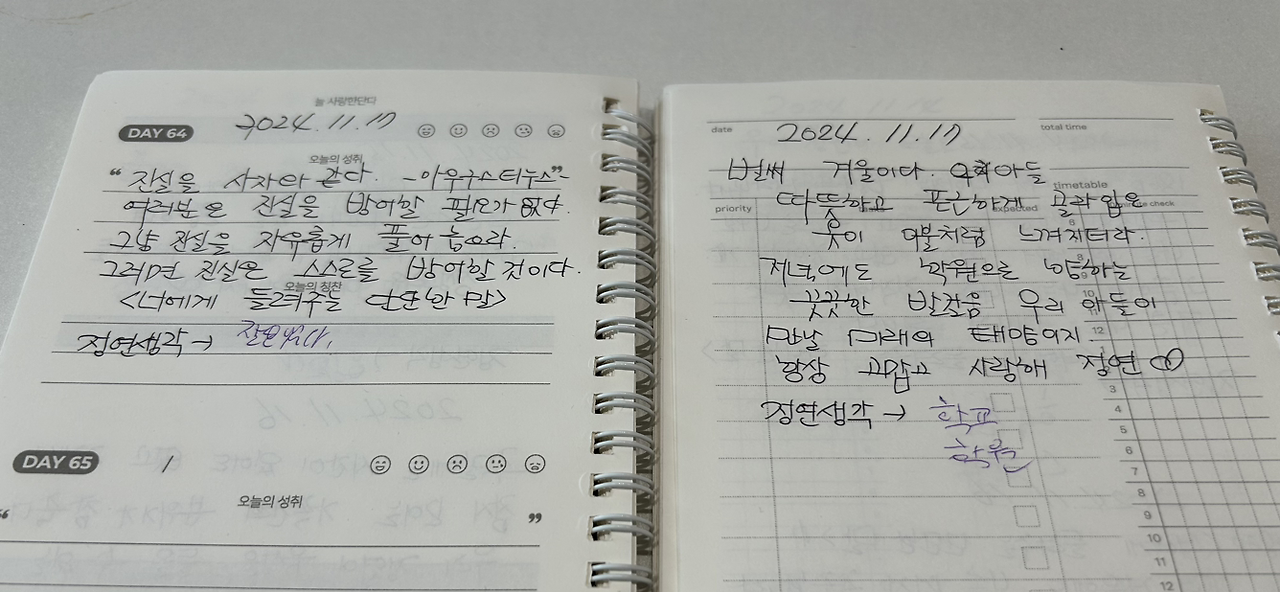 늘 사랑한단다
DAY 64 2024.11.17
오늘의 성취
"진실은 사자와 같다. -아우구스티누스"-
여러분은 진실을 방어할 필요가 없다.
그냥 진실을 자유롭게 풀어 놓으라.
그러면 진실은 스스로를 방어할 것이다.
오늘의 칭찬
<너에게 들려주는 단단한 말>
정연생각→
DAY 65 1
오늘의 성취
" "
date 2024.11.17 total time
벌써 겨울이다. 아들
timetable
따뜻하고 포근하게 입은
priority expected check
옷이 이불처럼 느껴지더라.
저녁에도 학원으로 이동하는
꿋꿋한 발걸음 우리 아들이
만날 미래의 태양이지.
항상 고맙고 사랑해 정연
정연생각→ 학교
학원
8
9
10
12
3
4
5
6
7
8
9
10
11
12